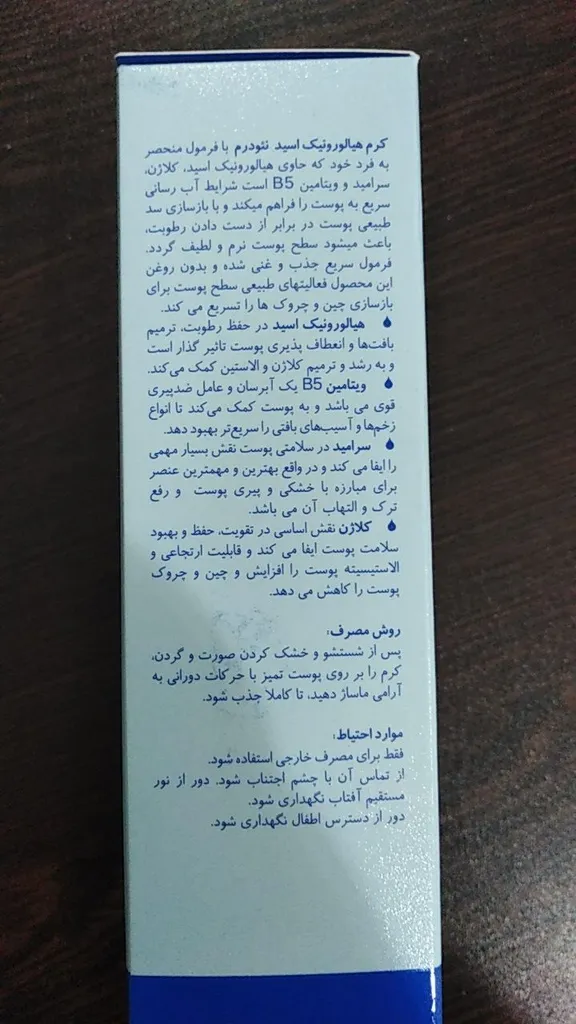 کرم هیالورونیک اسید نئودرم با فرمول منحصر
به فرد خود که حاوی هیالورونیک اسید، کلاژن،
سرامید و ویتامین B5 است شرایط آب رسانی
سریع به پوست را فراهم میکند و با بازسازی سد
طبیعی پوست در برابر از دست دادن رطوبت،
باعث میشود سطح پوست نرم و لطیف گردد.
فرمول سریع جذب و غنی شده و بدون روغن
این محصول فعالیتهای طبیعی سطح پوست برای
بازسازی چین و چروک ها را تسریع می کند.
هیالورونیک اسید در حفظ رطوبت، ترمیم
بافت‌ها و انعطاف پذیری پوست تاثیر گذار است
و به رشد و ترمیم کلاژن و الاستین کمک می‌کند.
ویتامین B5 یک آبرسان و عامل ضدپیری
قوی می باشد و به پوست کمک می‌کند تا انواع
زخم‌ها و آسیب‌های بافتی را سریع‌تر بهبود دهد.
سرامید در سلامتی پوست نقش بسیار مهمی
را ایفا می کند و در واقع بهترین و مهمترین عنصر
برای مبارزه با خشکی و پیری پوست و رفع
ترک و التهاب آن می باشد.
کلاژن نقش اساسی در تقویت، حفظ و بهبود
سلامت پوست ایفا می کند و قابلیت ارتجاعی و
الاستیسیته پوست را افزایش و چین و چروک
پوست را کاهش می دهد.
روش مصرف:
پس از شستشو و خشک کردن صورت و گردن،
کرم را بر روی پوست تمیز با حرکات دورانی به
آرامی ماساژ دهید، تا کاملا جذب شود.
موارد احتیاط:
فقط برای مصرف خارجی استفاده شود.
از تماس آن با چشم اجتناب شود. دور از نور
مستقیم آفتاب نگهداری شود.
دور از دسترس اطفال نگهداری شود.